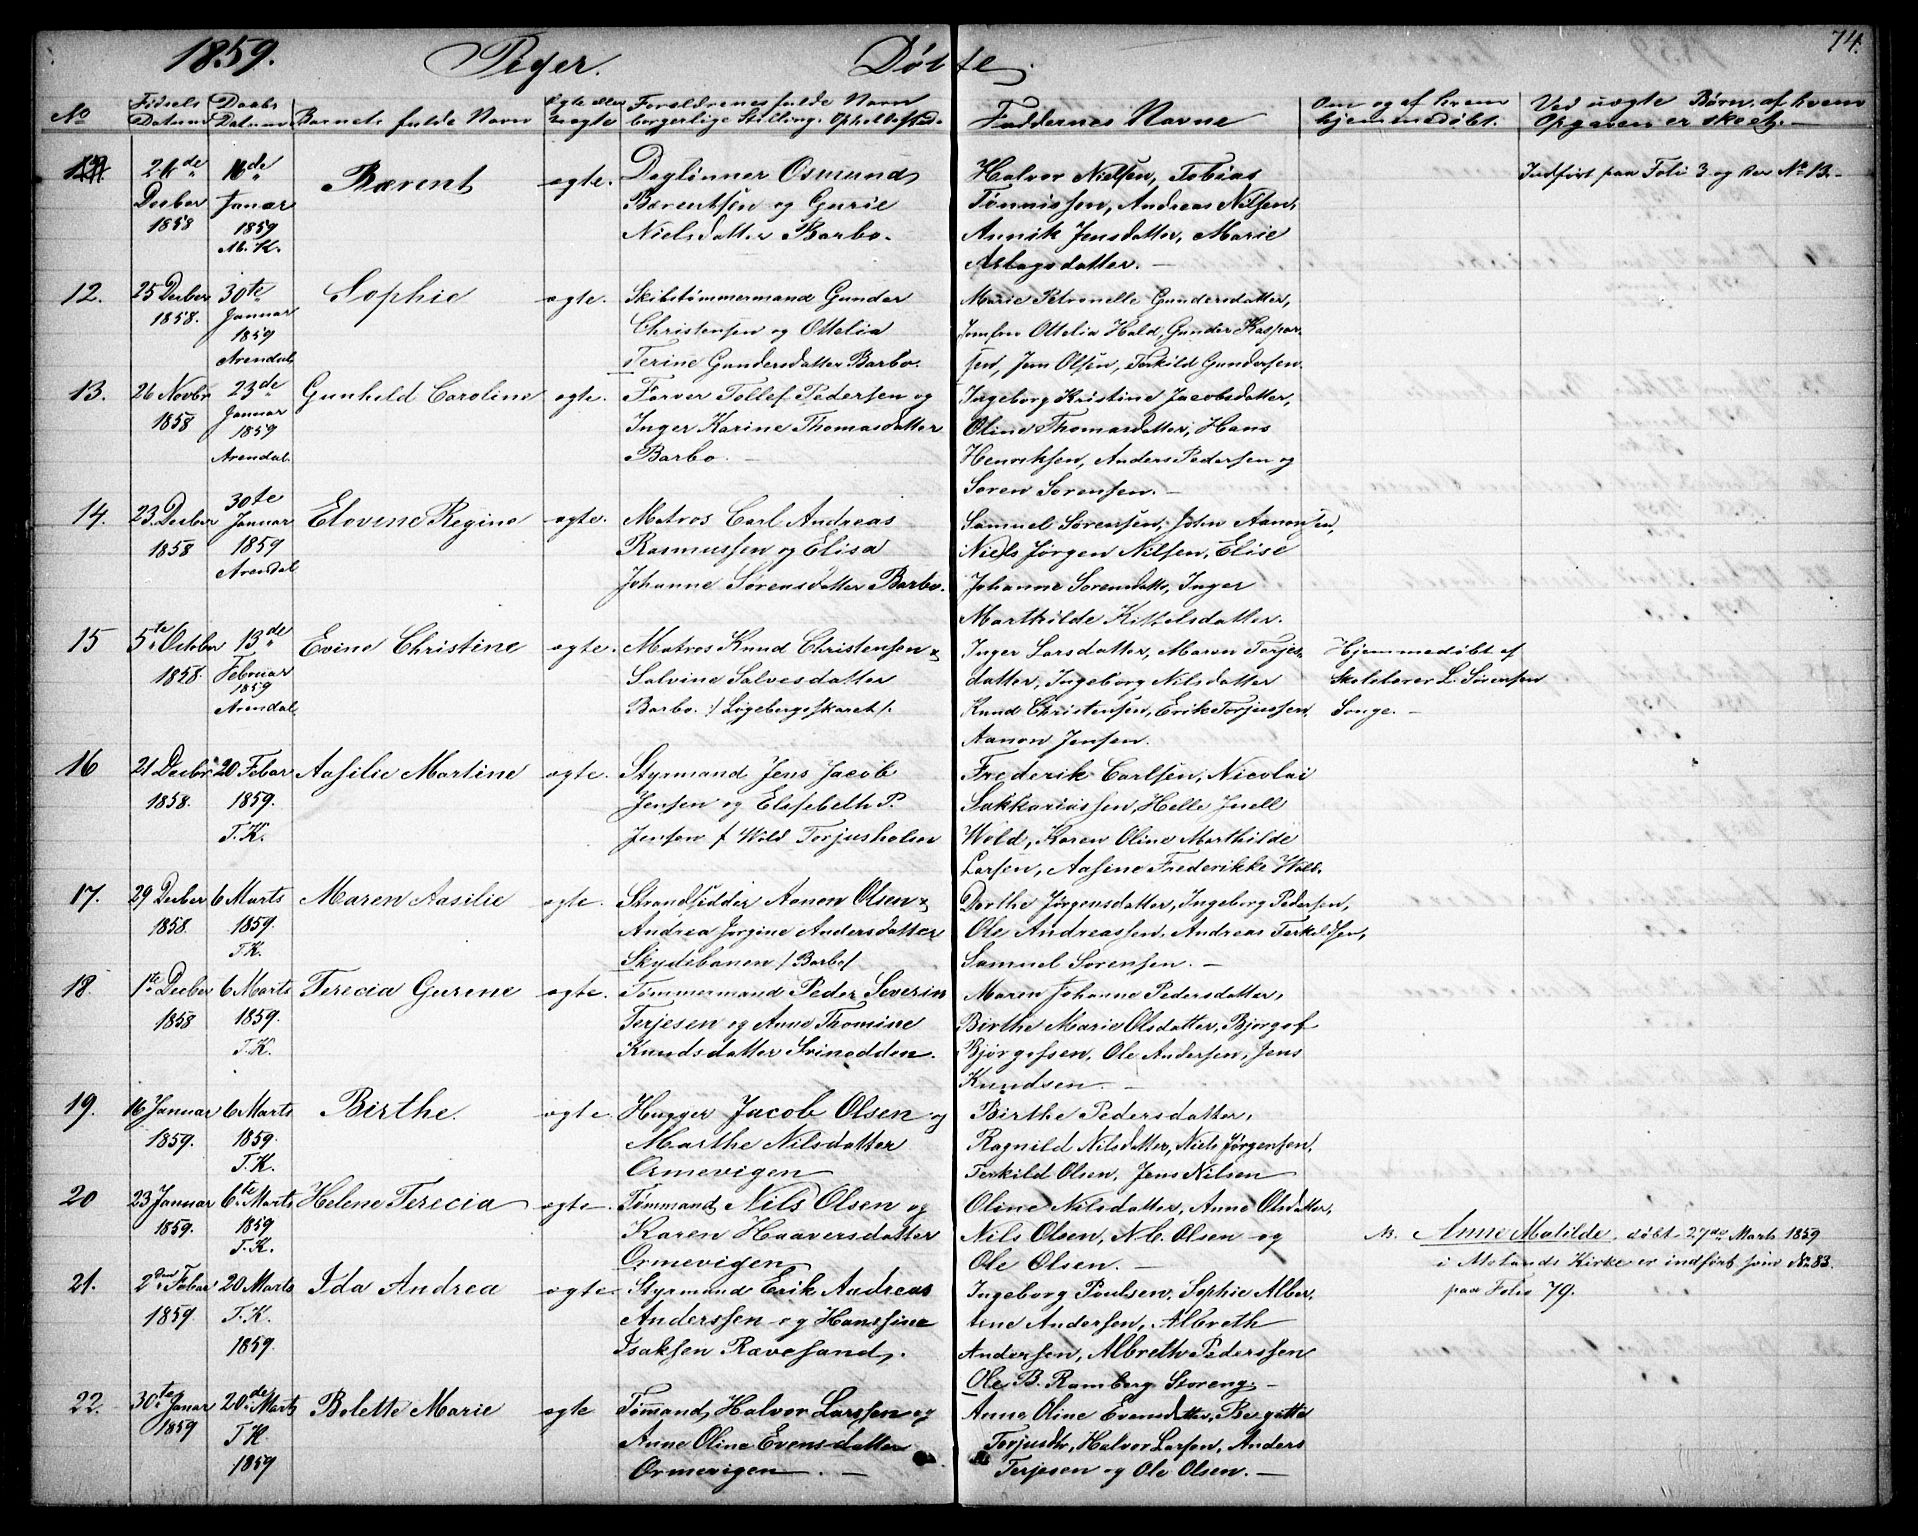 74.
1859. Piger. Døbte.
No Fødsels Datum Daabs Datum Barnets fulde Navn Egte eller uegte Forældrenes fulde Navn borgerlige Stilling. Opholdssted. Faddernes Navne Om og af hvem hjemmedøbt. Ved uægte Børn, af hvem Opgaven er skeet.
24de Decber 1858 16de Januar 1859 M. K. Barent egte. Daglønner Osmund
Barentsen og Gurie
Nielsdatter Barbo.
Halvor Nielsen, Tobias
Tønnissen, Andreas Nilsen,
Annik Jensdatter, Marie
Aslagsdatter. —
Indført paa Folio 3 og der No 13.
12. 25 Decber 1858. 30te Januar 1859 Arendal Sophie egte. Skibstømmermand Gunder
Christensen og Ottelia
Terine Gundersdatter Barbo.
Marie Petronelle Gundersdatter,
Jomfru Ottelia Hald, Gunder Kasper-
sen, Jens Olsen, Terkild Gundersen.
13. 26 Novbr 1858 23de Januar 1859 Arendal. Gunhild Caroline egte. Farver Tollef Pedersen og
Inger Karine Thomasdatter
Barbo. —
Ingeborg Kristine Jacobsdatter,
Oline Thomasdatter, Hans
Henriksen, Anders Pedersen og
Søren Sørensen. —
14. 23 Decber 1858 30te Januar 1859 Arendal Elovine Regine egte. Matros Carl Andreas
Rasmussen og Elisa
Johanne Sørensdatter Barbo.
Samuel Sørensen, John Aanonsen,
Niels Jørgen Nilsen, Elise
Johanne Sørensdatter, Inger
Marthilde Kittelsdatter.
15 5te October 1858. 13de Februar 1859 Arendal Evine Christine egte. Matros Knud Christensen &
Salvine Salvesdatter
Barbo. /: Løgebergsskaret :/.
Inger Larsdatter, Maren Torjes-
datter, Ingeborg Nilsdatter
Knud Christensen, Erik Torjussen,
Aanon Jensen.
Hjemmedøbt af
Skolelærer L. Sørensen
Songe. —
16 21 Decbr 1858. 20 Febar 1859. T. K. Aasilie Martine egte. Styrmand Jens Jacob
Jensen og Elesebeth P.
Jensen f Wold Torjusholmen
Frederik Carlsen, Nicolai
Sakkariassen, Helle Juell
Wold, Karen Oline Marthilde
Larsen, Aasine Frederikke Wold.
17. 29 Decber 1858. 6 Marts 1859. T.K. Maren Aasilie egte. Strandsidder Aanon Olsen &
Andrea Jørgine Andersdatter
Skydebanen / Barbo/
Dorthe Jørgensdatter, Ingeborg Pedersen,
Ole Andreassen, Andreas Terkildsen,
Samuel Sørensen. —
18. 1te Decber 1858 6 Marts 1859. T.K. Terecia Gurine egte. Tømmermand Peder Severin
Terjesen og Anne Thomine
Knudsdatter Srinodden.
Maren Johanne Pedersdatter,
Birthe Marie Olsdatter, Bjørgof
Bjørgofsen, Ole Andersen, Jens
Knudsen. —
19. 16 Januar 1859. 6 Marts 1859. T.K. Birthe. egte. Hugger Jacob Olsen og
Marthe Nilsdatter
Ormevigen
Birthe Pedersdatter,
Ragnild Nilsdatter, Niels Jørgensen,
Terkild Olsen, Jens Nilsen
20 23 Januar 1859. 6te Marts 1859 T.K. Helene Terecia egte. Tømmand Nils Olsen og
Karen Haaversdatter
Ormevigen
Oline Nilsdatter, Anne Olsdatter,
Nils Olsen, N. C. Olsen og
Ole Olsen. —
N. Anne Matilde, døbt 27de Marts 1859
i Molands Kirke er indført som No 83.
paa Folio 79.
21. 2den Febar 1859. 20 Marts T.K. 1859. Ida Andrea egte. Styrmand Erik Andreas
Anderssen og Hanssine
Isaksen Ravesand.
Ingeborg Poulsen, Sophie Alber-
tine Andersen, Albreth
Andersen, Albreth Pederssen
Ole B. Ramberg Storeng. —
22. 30te Januar 1859 20de Marts T.K. 1859 Bolette Marie egte Tømand Halvor Larssen og
Anne Oline Evensdatter
Ormevigen. —
Anne Oline Evensdatter, Bergitte
Torjusdtr, Halvor Larsen, Anders
Terjesen og Ole Olsen. —